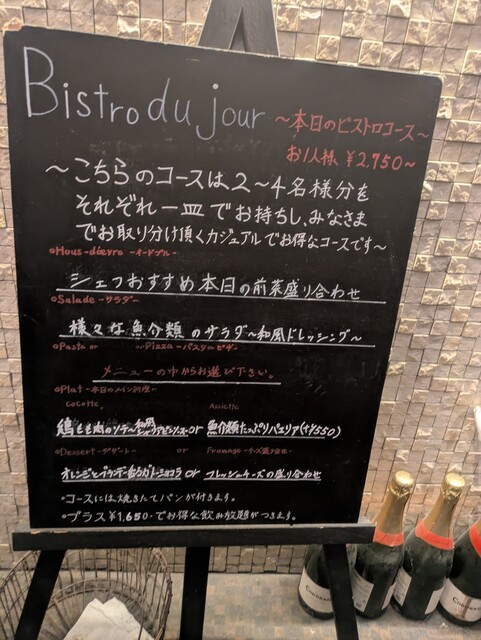 Bistro du jour ～本日のビストロコース～
お1人様 ¥2,750～
～こちらのコースは2～4名様分を
それぞれ一皿でお持ちし、みなさま
でお取り分け頂くカジュアルでお得なコースです～
-オードブル-
シェフおすすめ本日の前菜盛り合わせ
Salade -サラダー
様々な魚介類のサラダ～和風ドレッシング～
Pasta or Pizza -パスタ or ピザ-
メニューの中からお選び下さい。
Plat -本日のメイン料理-
cocotte Assiette
鶏もも肉のソテー or 魚介類たっぷりパエリア(+¥550)
Dessert -デザート- or Fromage
オレンジとブランデー香るガトーショコラ or フレッシュチーズの盛り合わせ
コースには焼きたてパンが付きます。
プラス¥1,650-でお得な飲み放題がつきます。